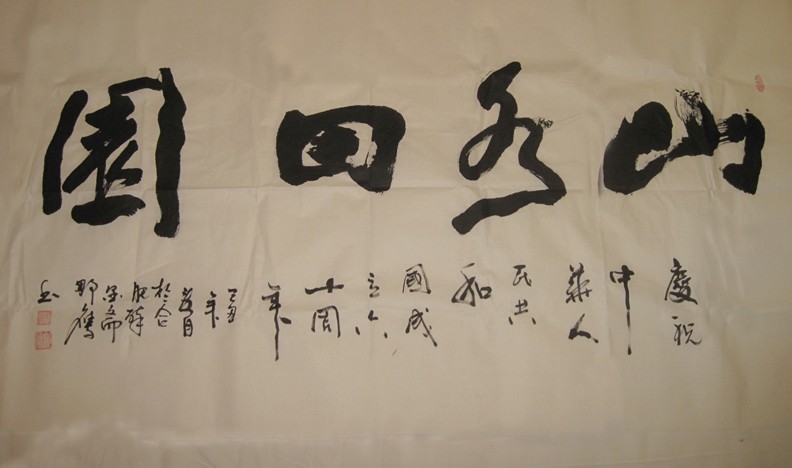 山水田園
慶祝
中
華人
民共
和
國成
立六
十周
年
己丑
年
月
於合
肥
齋
鷹
书